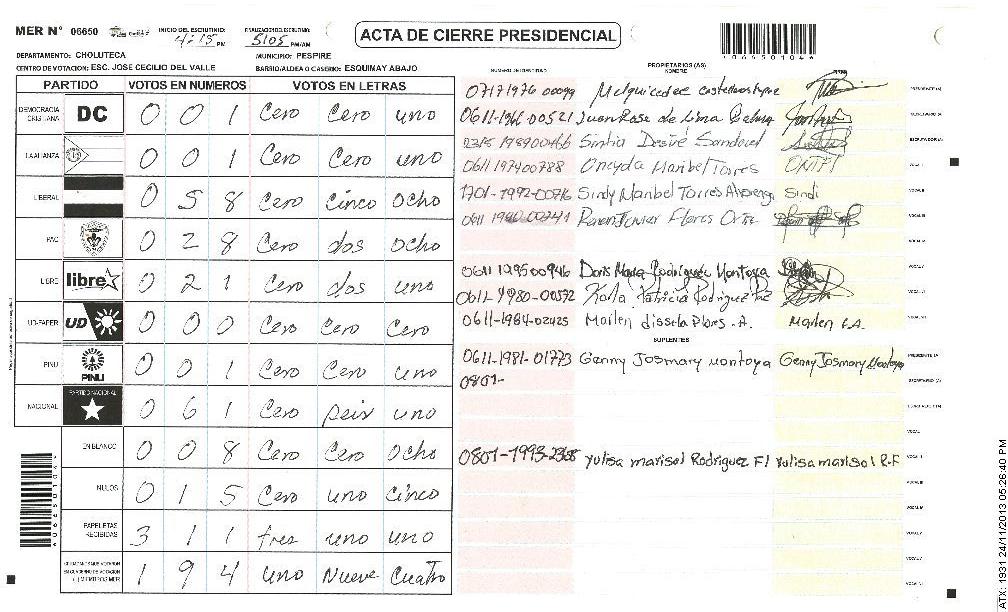 MER N° 06650 INICIO DEL ESCRUTINIO: 4:15 PM FINALIZACION DEL ESCRUTINIO: 5:05 PM/AM ACTA DE CIERRE PRESIDENCIAL
DEPARTAMENTO: CHOLUTECA MUNICIPIO: PESPIRE
CENTRO DE VOTACION: ESC. JOSE CECILIO DEL VALLE BARRIO/ALDEA O CASERIO: ESQUIMAY ABAJO
PARTIDO VOTOS EN NUMEROS VOTOS EN LETRAS
DEMOCRACIA CRISTIANA DC 0 0 1 Cero Cero uno
LA ALIANZA 0 0 1 Cero Cero uno
LIBERAL 0 5 8 Cero Cinco ocho
PAC 0 2 8 Cero dos ocho
LIBRE libre 0 2 1 Cero dos uno
UD-FAPER UD 0 0 0 Cero Cero Cero
PINU PINU 0 0 1 Cero Cero uno
NACIONAL PARTIDO NACIONAL 0 6 1 Cero seis uno
EN BLANCO 0 0 8 Cero Cero ocho
NULOS 0 1 5 Cero uno Cinco
PAPELETAS RECIBIDAS 3 1 1 tres uno uno
1 9 4 uno Nueve Cuatro
NUMERO DE IDENTIDAD PROPIETARIOS (AS) NOMBRE FIRMA
07171976 00099 PRESIDENTE (A)
0611-1966-00521 Juan Jose de Lima SECRETARIO (A)
Sintia Desiré Sandoval ESCRUTADOR (A)
0611 197400788 Oneyda Maribel Torres VOCAL I
1701-1992-00716 Sindy Maribel Torres Sindi VOCAL II
Flores Ortiz VOCAL III
VOCAL IV
0611 199500946 Doris Maria Rodriguez Montoya VOCAL V
0611-1980-00572 Karla Patricia Rodriguez VOCAL VI
0611-1984-02425 Marlen dissela Flores .A. Marlen F.A. VOCAL VII
SUPLENTES
0611-1981-01773 Genny Josmary montoya Genny Josmary Montoya PRESIDENTE (A)
0801- SECRETARIO (A)
ESCRUTADOR (A)
VOCAL I
0801-1993-2368 yulisa marisol Rodriguez Fl yulisa marisol R.F VOCAL II
VOCAL III
VOCAL IV
VOCAL V
VOCAL VI
VOCAL VII
ATX: 1931 24/11/2013 05:26:40 PM